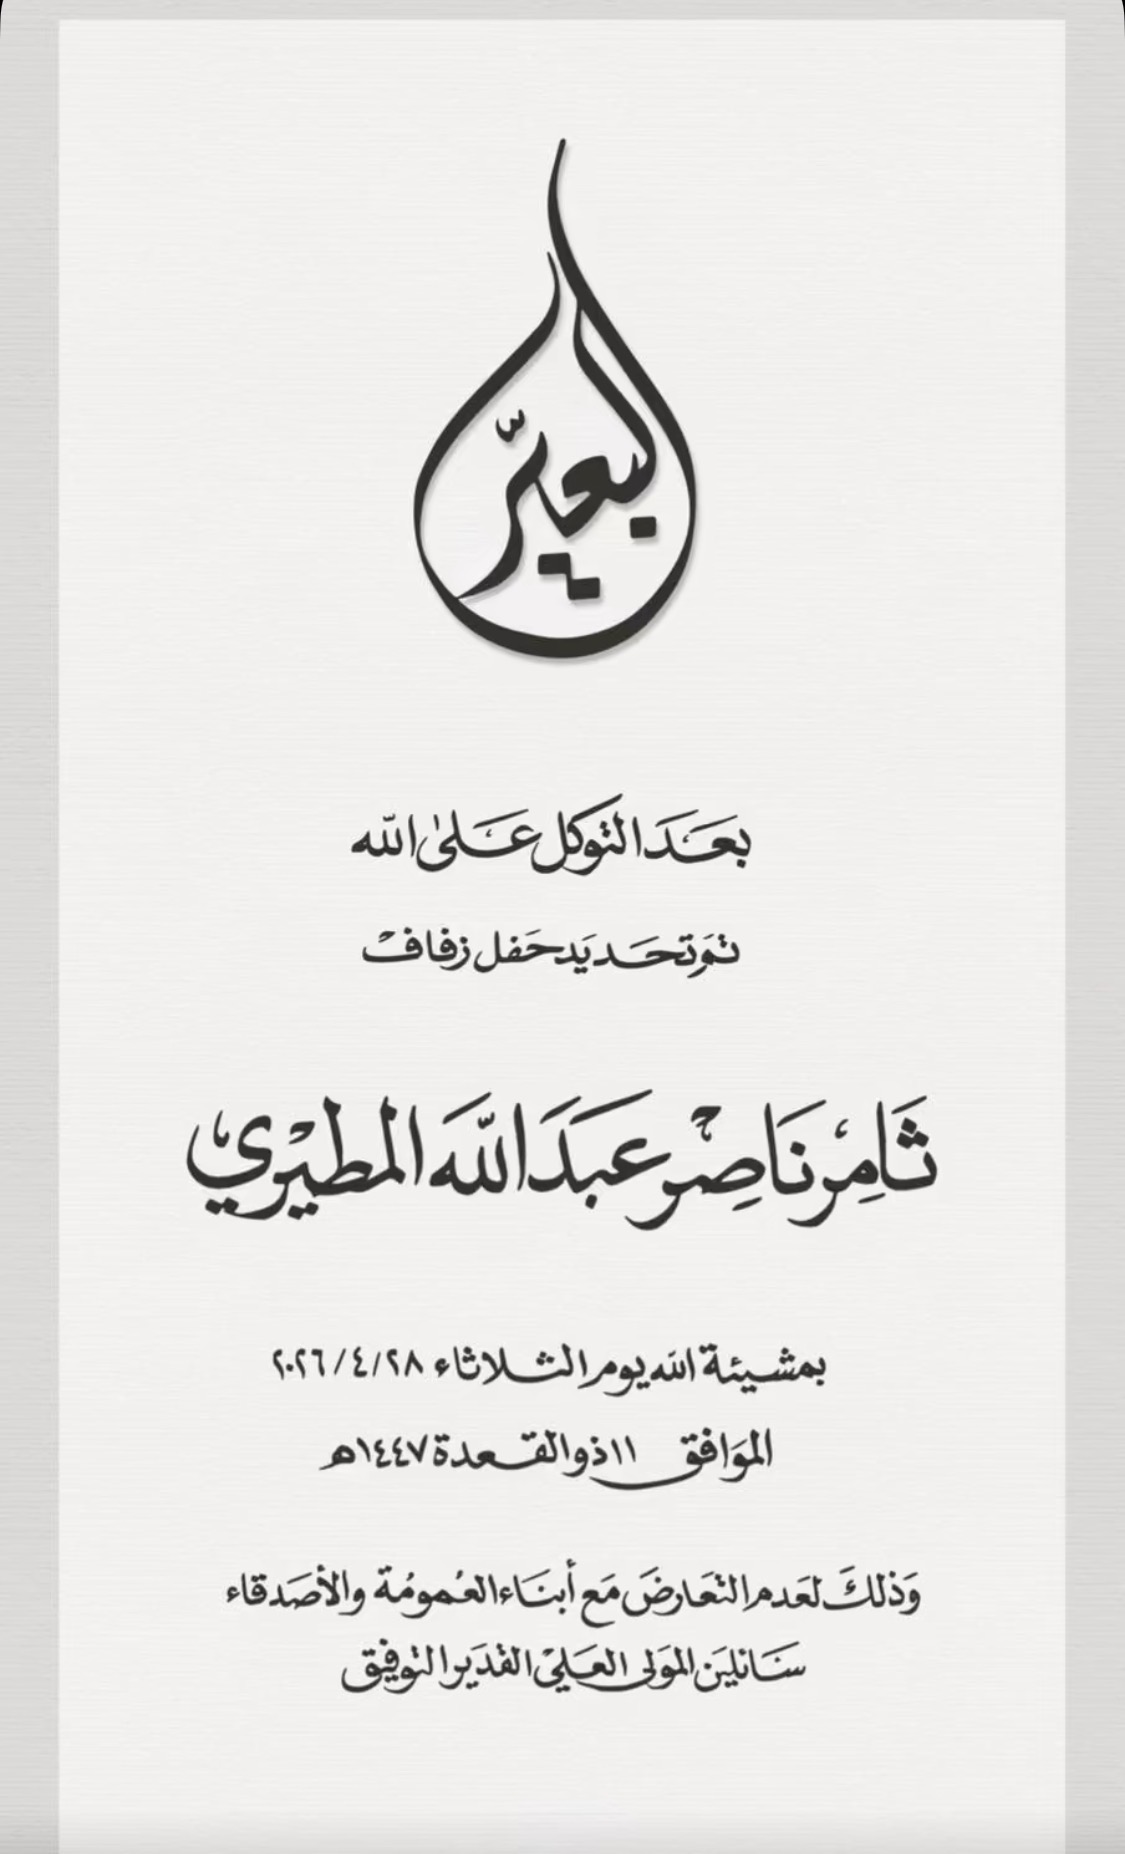 البعير
بعد التوكل على الله
تم تحديد حفل زفاف
ثامر ناصر عبدالله المطيري
بمشيئة الله يوم الثلاثاء ٢٠٢٦/٤/٢٨
الموافق ١١ ذو القعدة ١٤٤٧هـ
وذلك لعدم التعارض مع أبناء العمومة والأصدقاء
سائلين المولى العلي القدير التوفيق